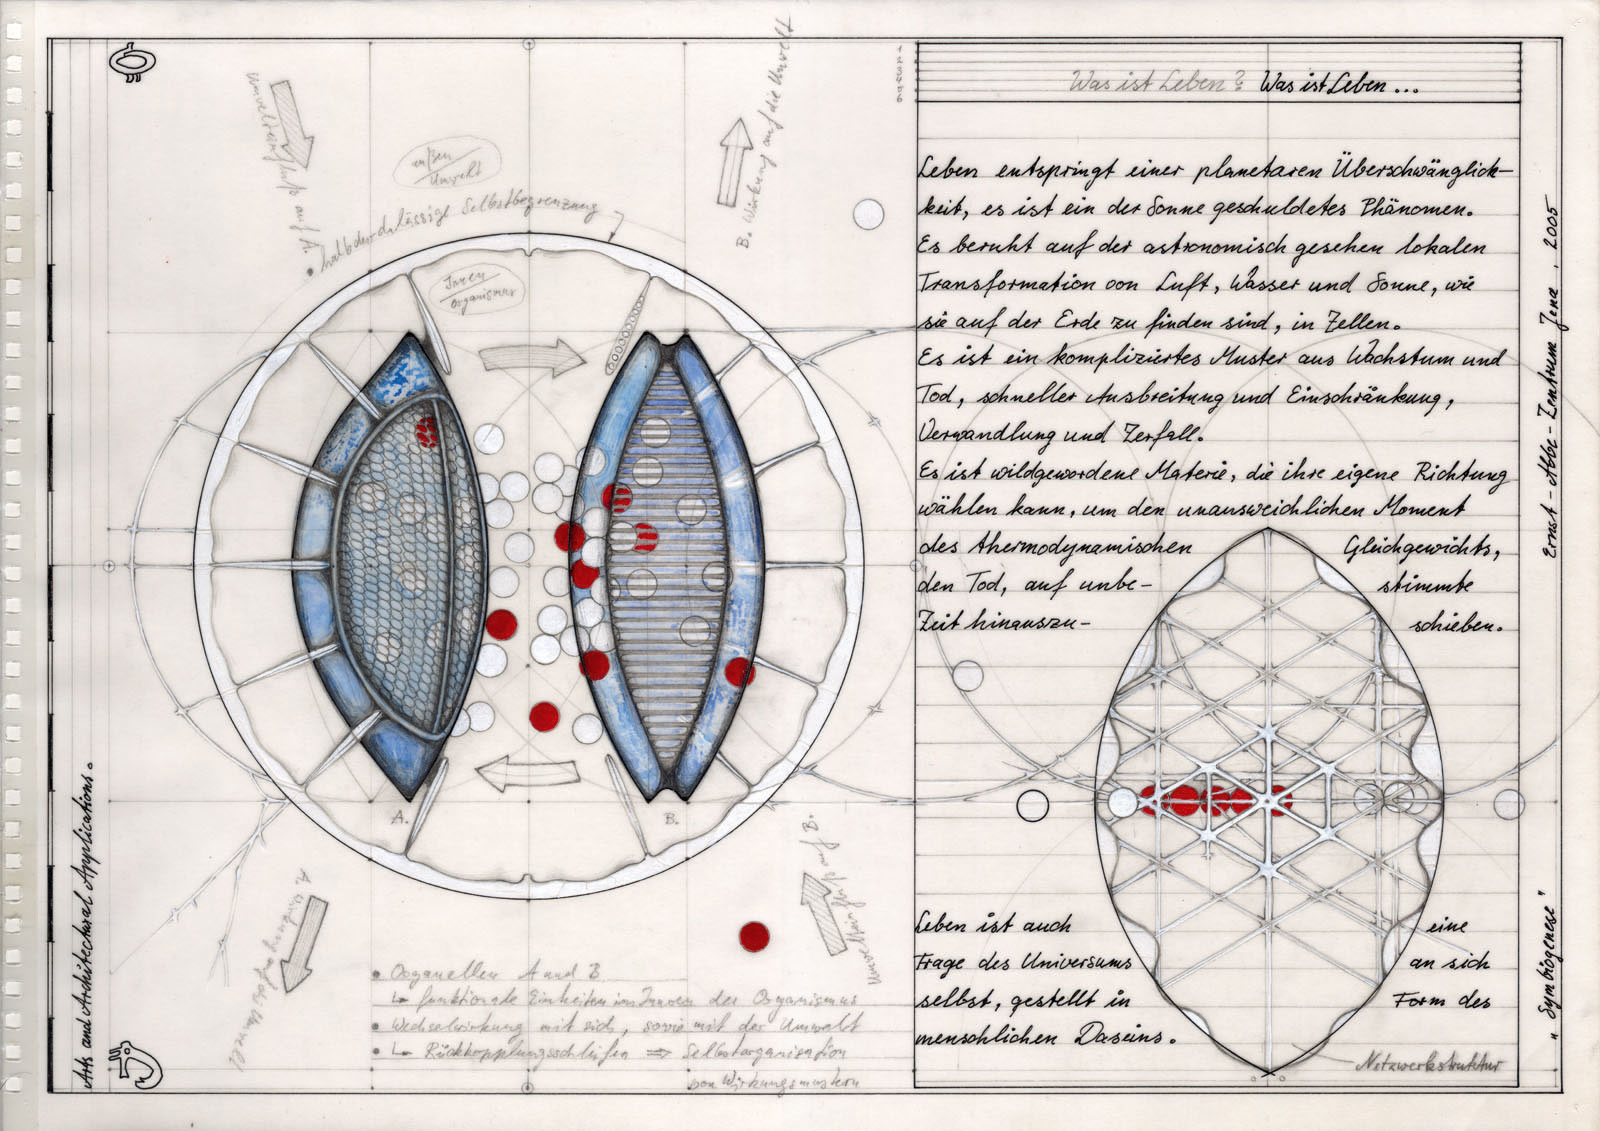 Was ist Leben? Was ist Leben...
Leben entspringt einer planetaren Überschwänglich-
keit, es ist ein der Sonne geschuldetes Phänomen.
Es beruht auf der astronomisch gesehen lokalen
Transformation von Luft, Wasser und Sonne, wie
sie auf der Erde zu finden sind, in Zellen.
Es ist ein kompliziertes Muster aus Wachstum und
Tod, schneller Ausbreitung und Einschränkung,
Verwandlung und Zerfall.
Es ist wildgewordene Materie, die ihre eigene Richtung
wählen kann, um den unausweichlichen Moment
des thermodynamischen Gleichgewichts,
den Tod, auf unbe- stimmte
Zeit hinauszu- schieben.
Leben ist auch eine
Frage des Universums an sich
selbst, gestellt in Form des
menschlichen Daseins.
Netzwerkstruktur
Umwelteinfluß auf A.
außen
Umwelt
• halbdurchlässige Selbstbegrenzung
Innen
Organismus
B. Wirkung auf die Umwelt
A.
B.
A. Wirkung auf die Umwelt
Umwelteinfluß auf B.
• Organellen A und B
↳ funktionale Einheiten im Innern des Organismus
• Wechselwirkung mit sich, sowie mit der Umwelt
• ↳ Rückkopplungsschleifen ⇒ Selbstorganisation
von Wirkungsmustern
Arts and Architectural Applications.
Ernst-Abbe-Zentrum Jena, 2005
"Symbiogenese"